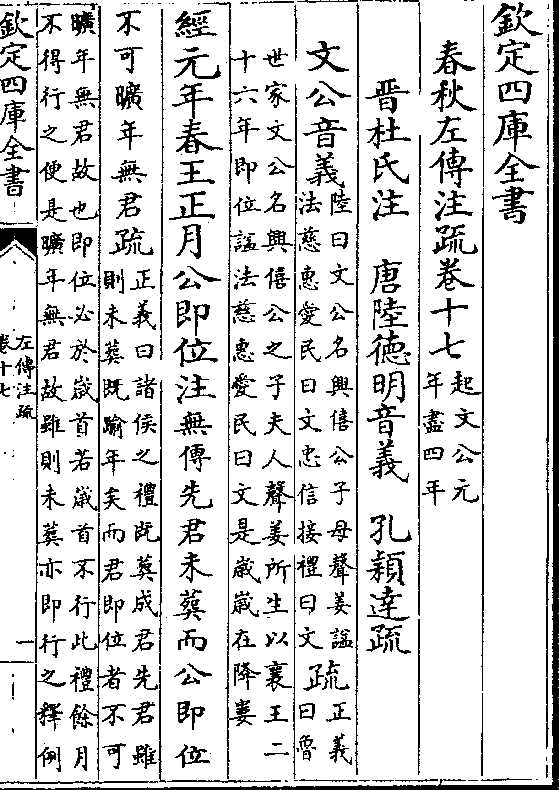 欽定四庫全書
春秋左傳注疏卷十七起文公元
年盡四年
晉杜氏注 唐陸德明音義 孔穎達疏
文公音義陸曰文公名興僖公子母聲姜諡
法慈惠愛民曰文忠信接禮曰文疏正義
曰魯
世家文公名興僖公之子夫人聲姜所生以襄王二
十六年即位諡法慈惠愛民曰文是歲歲在降婁
經元年春王正月公即位注無傳先君未葬而公即位
不可曠年無君疏正義曰諸侯之禮既葬成君先君雖
則未葬既踰年矣而君即位者不可
曠年無君故也即位必於歲首若歲首不行此禮餘月
不得行之便是曠年無君故雖則未葬亦即行之釋例
欽定四庫全書
左傳注疏
卷十七
一